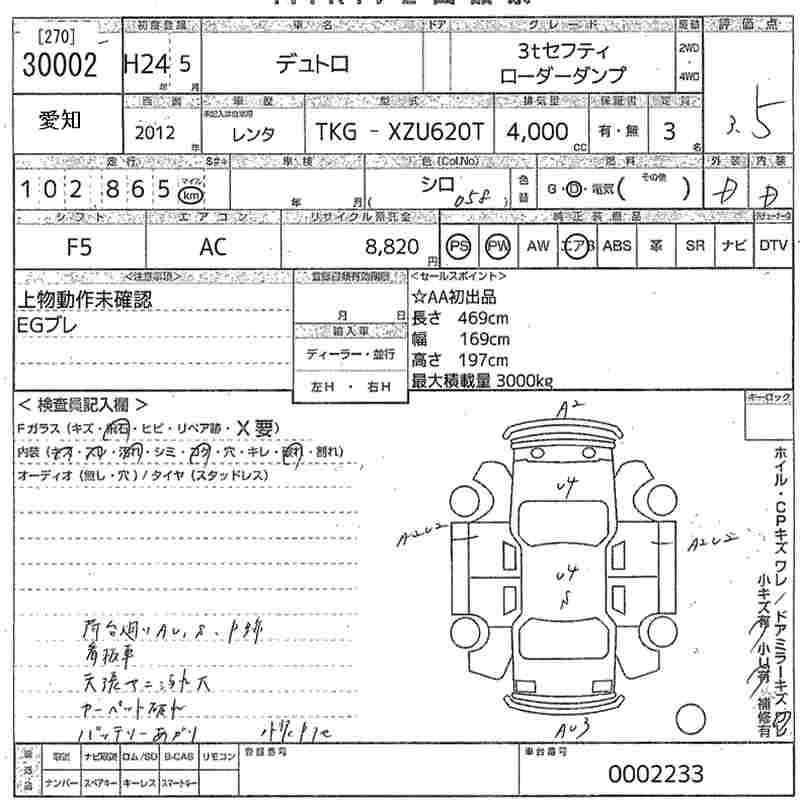 [270]
30002
初度登録
車名
ドア
グレード
駆動
評価点
H24年 5月
デュトロ
3tセフティ
ローダーダンプ
2WD
・
4WD
3.5
愛知
西暦
車歴
型式
排気量
保証書
定員
2012年
未記入は自家用
レンタ
TKG - XZU620T
4,000cc
有・無
3名
走行
車検
色(Col.No)
燃料
外装
内装
102865
マイル
km
年 月
シロ
( 058 )
色替
G・D・電気( その他 )
D
D
シフト
エアコン
リサイクル預託金
純正装備品
F5
AC
8,820円
PS
PW
AW
エアB
ABS
革
SR
ナビ
DTV
<注意事項>
登録書類有効期限
<セールスポイント>
上物動作未確認
EGブレ
月 日
輸入車
ディーラー・並行
左H ・ 右H
☆AA初出品
長さ 469cm
幅 169cm
高さ 197cm
最大積載量 3000kg
キーロック
< 検査員記入欄 >
Fガラス (キズ・飛石・ヒビ・リペア跡・X要)
内装 (ネオ・スレ・汚れ・シミ・コゲ・穴・キレ・破れ・割れ)
オーディオ (無し・穴) / タイヤ (スタッドレス)
A2
U4
A2U2
A2U2
U4
S
AU3
ホイル・CPキズ ワレ / ドアミラーキズ ワレ
小キズ有 / 小U有 / 補修有
荷台廻り AU、S、P跡
看板車
カーペット破れ
バッテリーあがり
取説
ナビ取説
ロム/SD
B-CAS
リモコン
ナンバー
スペアキー
キーレス
スマートキー
登録番号
車台番号
0002233